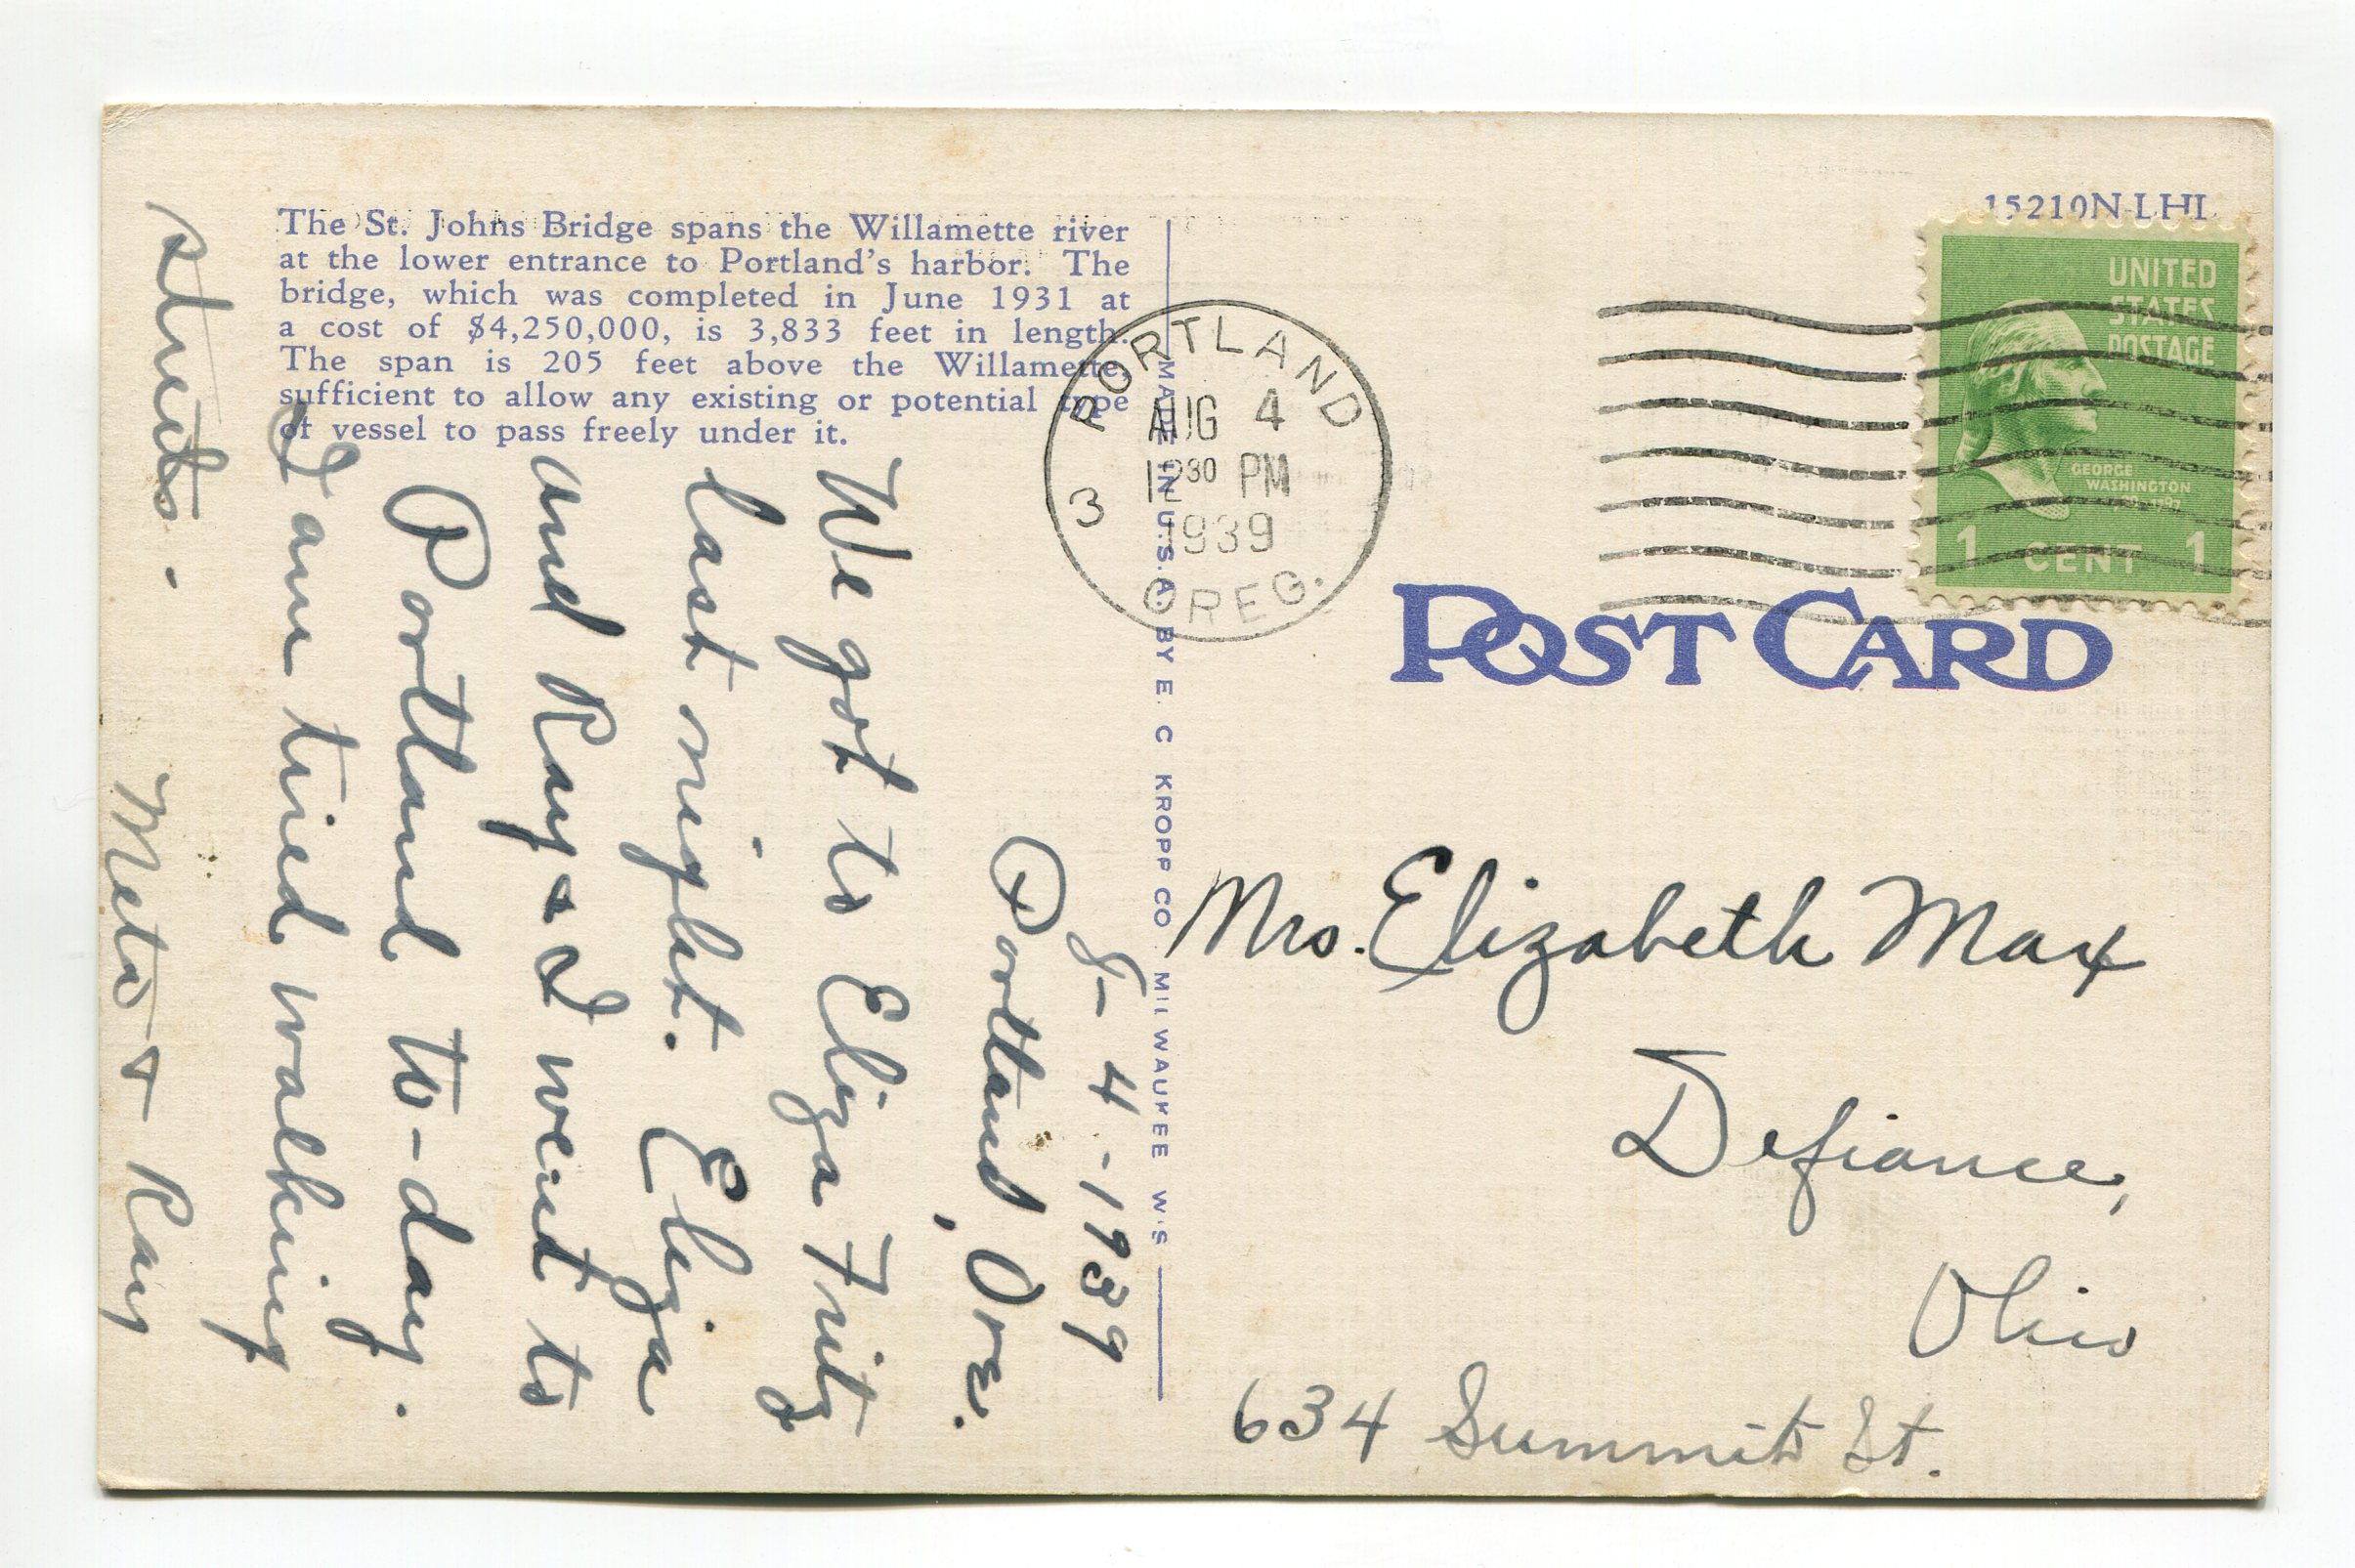 The St. Johns Bridge spans the Willamette river
at the lower entrance to Portland's harbor. The
bridge, which was completed in June 1931 at
a cost of $4,250,000, is 3,833 feet in length.
The span is 205 feet above the Willamette,
sufficient to allow any existing or potential type
of vessel to pass freely under it.
8-4-1939
Portland, Ore.
We got to Eliza Fritz
last night. Eliza
and Ray & I went to
Portland to-day.
I am tired walking
streets.
Meta & Ray
MADE IN U.S.A. BY E. C. KROPP CO. MILWAUKEE WIS
PORTLAND
AUG 4
12 30 PM
1939
3
OREG.
15210N-LHL
UNITED
STATES
POSTAGE
GEORGE
WASHINGTON
1 CENT 1
POST CARD
Mrs. Elizabeth Max
Defiance,
Ohio
634 Summit St.